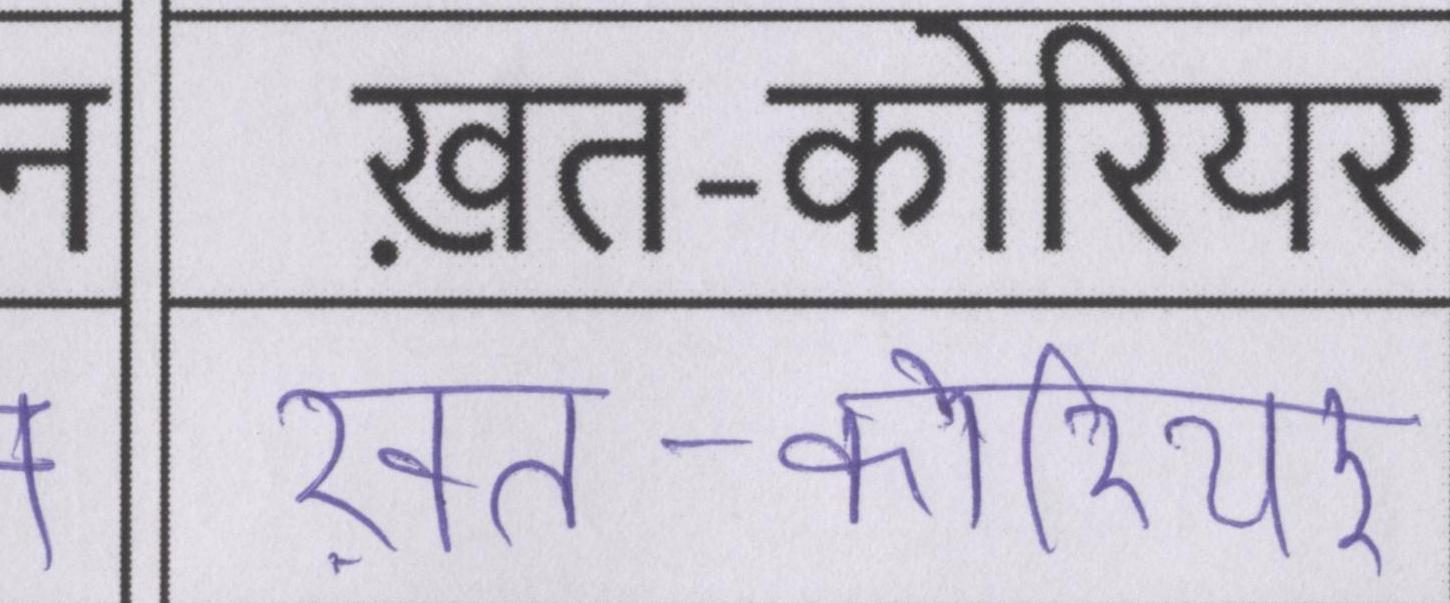 न ख़त-कोरियर
न ख़त-कोरियर